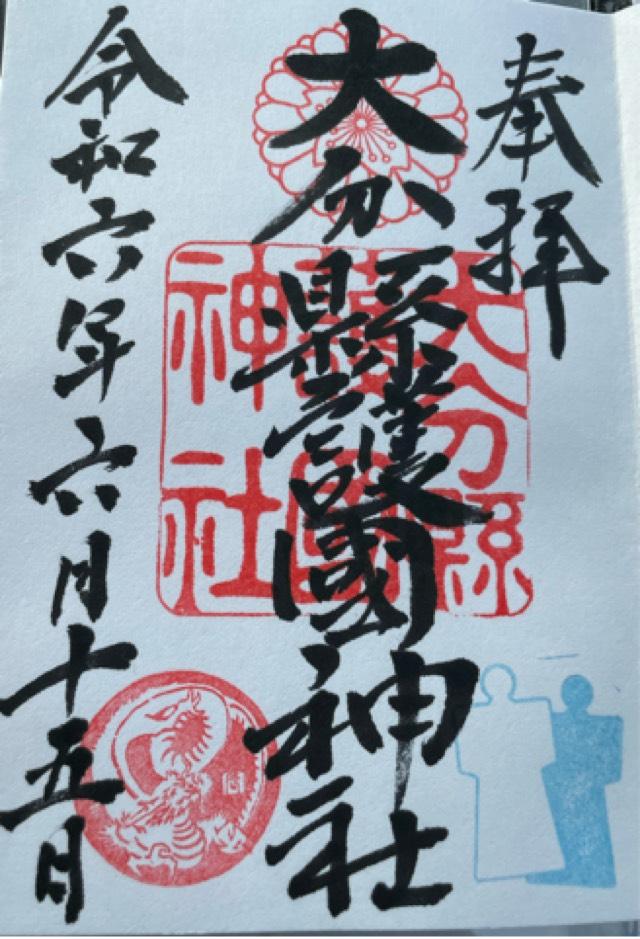 奉拝
大分縣護國神社
大分縣護國神社
令和六年六月十五日